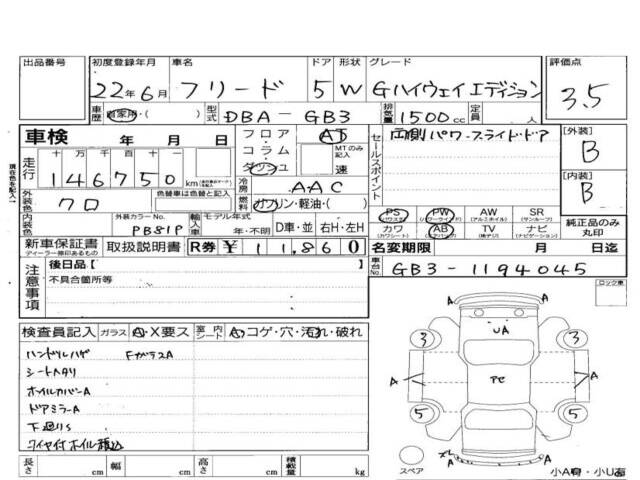 出品番号 初度登録年月 車名 ドア 形状 グレード 評価点
22年6月 フリード 5 W Gハイウェイエディション 3.5
車歴 自家用・( ) 型式 DBA-GB3 排気量 1500cc 定員 人
車検 年 月 日 フロア・コラム・ダッシュ AT MTのみ記入 速 セールスポイント 両側パワースライドドア [外装] B
走行 十 万 千 百 十 一
146750 km 冷房 AAC [内装] B
現在色を記入
外装色 クロ 色替車は色替と記入 燃料 ガソリン・軽油・( )
PS PW AW SR
(パワステ) (パワーウィンド) (アルミホイル) (サンルーフ)
内装色 外装カラーNo. PB81P 輸入車 モデル年式 年・不明 D車・並 右H・左H カワ AB TV ナビ 純正品のみ丸印
(カワシート) (エアバック) (純テレビ) (ナビゲーション)
新車保証書 取扱説明書 R券 ¥11,860 名変期限 月 日迄
ディーラー捺印あるもの
車台No. GB3-1194045
注意事項 後日品【 】
不具合箇所等
ロック車
検査員記入 ガラス A・X要ス 室内シート A・コゲ・穴・汚れ・破れ
ハンドルハゲ FガラスA
シートヘタリ
ホイルカバーA
ドアミラーA
下廻りS
タイヤ付ホイル積込
UA
3 3
A A A
5 5
A
スペア
小A有・小U有
長さ cm 幅 cm 高さ cm 積載量 kg